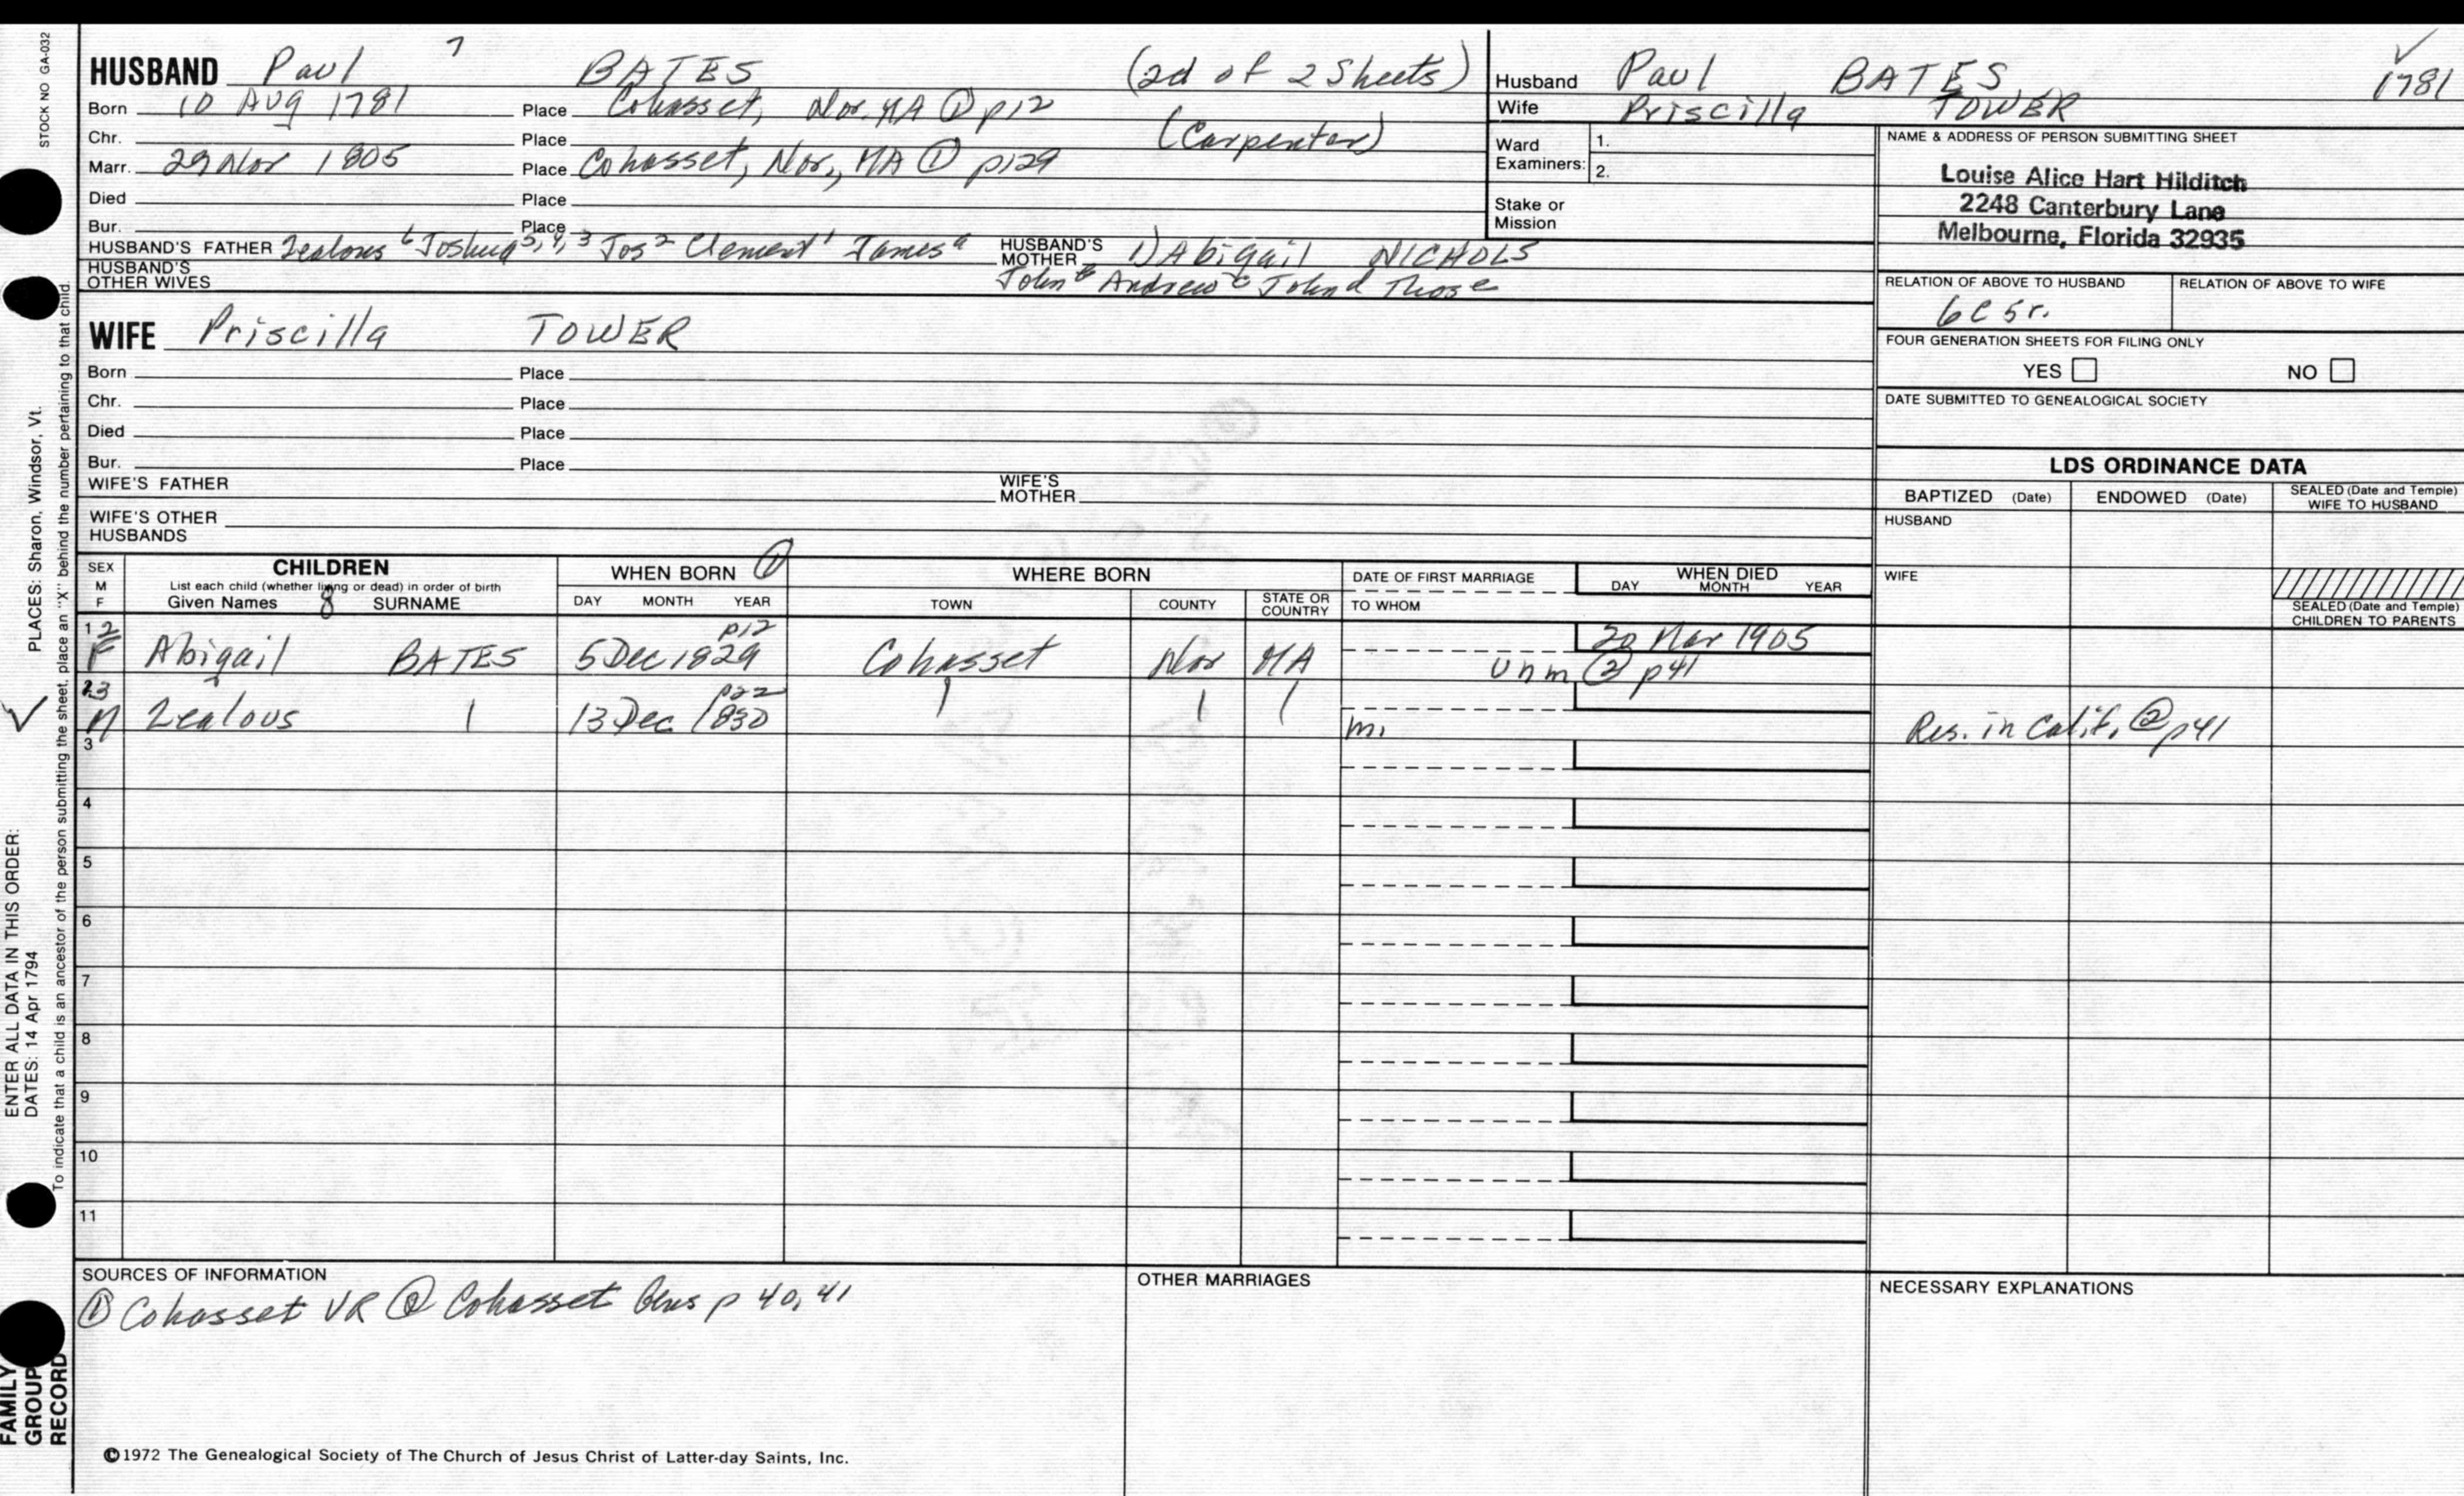 STOCK NO GA-032
HUSBAND Paul 7 BATES (2d of 2 Sheets)
Born 10 AUG 1781 Place Cohasset, Nor. MA ① p12
Chr. Place (Carpenter)
Marr. 29 Nov 1805 Place Cohasset, Nor., MA ① p129
Died Place
Bur. Place
HUSBAND'S FATHER Zealous 6 Joshua 5, 4, 3 Jos 2 Clement 1 James a HUSBAND'S MOTHER 1) Abigail NICHOLS
HUSBAND'S OTHER WIVES John b Andrew c John d Thos e
Husband Paul BATES 1781
Wife Priscilla TOWER
Ward Examiners: 1.
2.
Stake or Mission
NAME & ADDRESS OF PERSON SUBMITTING SHEET
Louise Alice Hart Hilditch
2248 Canterbury Lane
Melbourne, Florida 32935
RELATION OF ABOVE TO HUSBAND RELATION OF ABOVE TO WIFE
6C 5r.
FOUR GENERATION SHEETS FOR FILING ONLY
YES NO
DATE SUBMITTED TO GENEALOGICAL SOCIETY
WIFE Priscilla TOWER
Born Place
Chr. Place
Died Place
Bur. Place
WIFE'S FATHER WIFE'S MOTHER
WIFE'S OTHER HUSBANDS
LDS ORDINANCE DATA
BAPTIZED (Date) ENDOWED (Date) SEALED (Date and Temple) WIFE TO HUSBAND
HUSBAND
WIFE
SEALED (Date and Temple) CHILDREN TO PARENTS
SEX M F
CHILDREN
List each child (whether living or dead) in order of birth
Given Names 8 SURNAME
WHEN BORN ①
DAY MONTH YEAR
WHERE BORN
TOWN COUNTY STATE OR COUNTRY
DATE OF FIRST MARRIAGE
TO WHOM
WHEN DIED
DAY MONTH YEAR
12 F Abigail BATES 5 Dec 1829 p12 Cohasset Nor MA 20 Mar 1905
unm ② p41
13 M Zealous 13 Dec 1830 p22 m. Res. in Calif. ② p41
3
4
5
6
7
8
9
10
11
SOURCES OF INFORMATION
① Cohasset VR ② Cohasset Gens p 40, 41
OTHER MARRIAGES
NECESSARY EXPLANATIONS
©1972 The Genealogical Society of The Church of Jesus Christ of Latter-day Saints, Inc.
FAMILY GROUP RECORD
ENTER ALL DATA IN THIS ORDER:
DATES: 14 Apr 1794 PLACES: Sharon, Windsor, Vt.
To indicate that a child is an ancestor of the person submitting the sheet, place an "X" behind the number pertaining to that child.